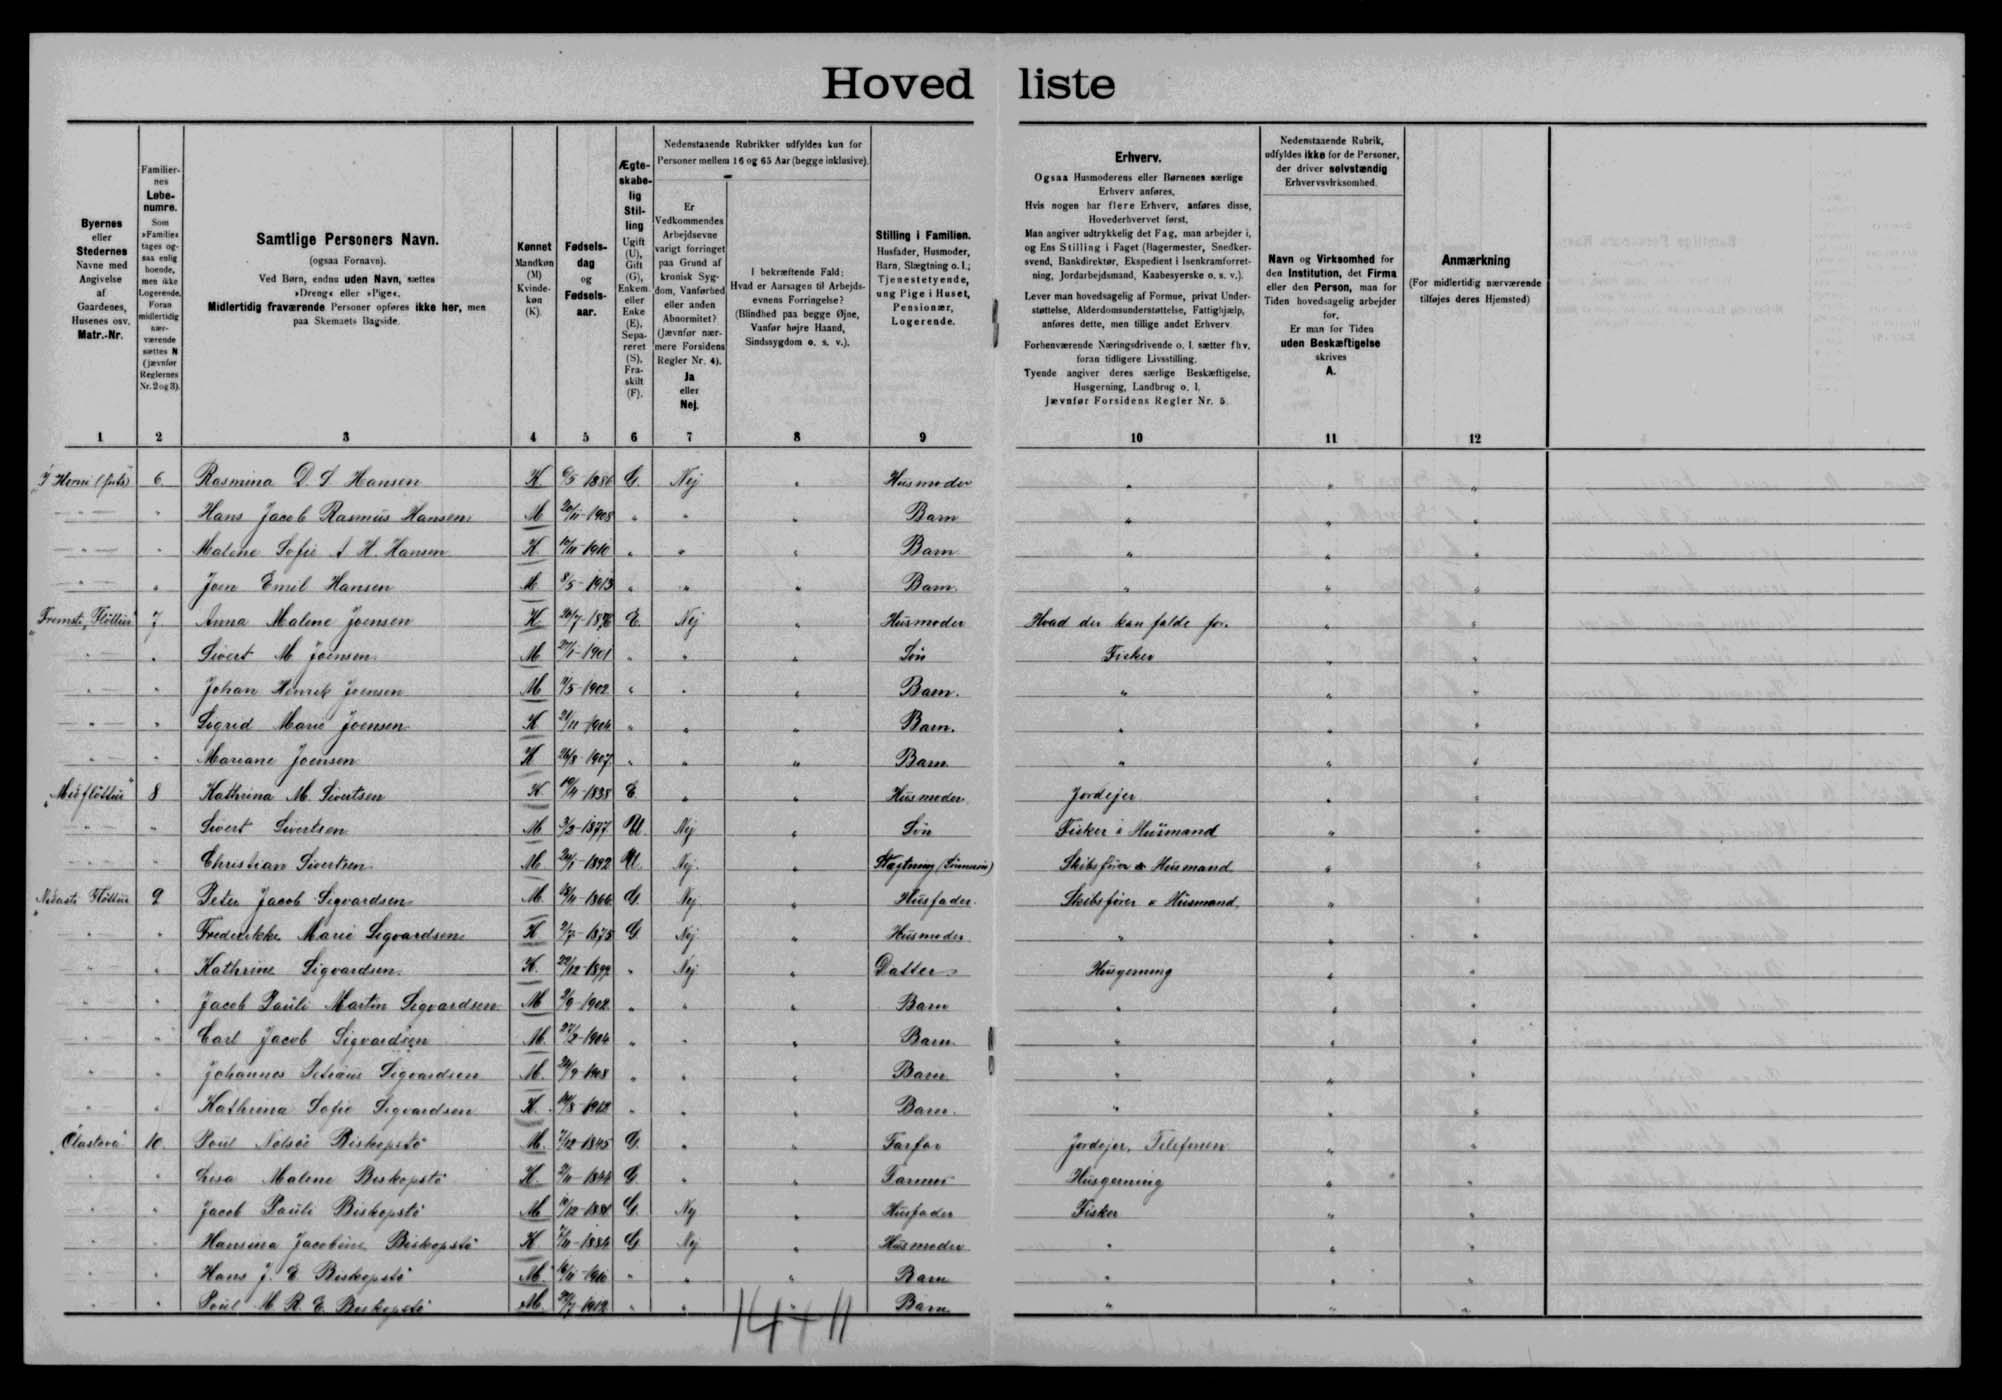 Hoved liste
Byernes eller Stedernes Navne med Angivelse af Gaardenes, Husenes osv. Matr.-Nr.
Familiernes Løbenumre. Som »Familie« tages ogsaa enlig boende, men ikke Logerende. Foran midlertidig nærværende sættes N (jævnfør Reglernes Nr. 2 og 3).
Samtlige Personers Navn.
(ogsaa Fornavn).
Ved Børn, endnu uden Navn, sættes »Dreng« eller »Pige«.
Midlertidig fraværende Personer opføres ikke her, men paa Skemaets Bagside.
Kønnet Mandkøn (M) Kvindekøn (K).
Fødselsdag og Fødselsaar.
Ægteskabelig Stilling Ugift (U), Gift (G), Enkem. eller Enke (E), Separeret (S), Fraskilt (F).
Nedenstaaende Rubrikker udfyldes kun for Personer mellem 16 og 65 Aar (begge inklusive).
Er Vedkommendes Arbejdsevne varigt forringet paa Grund af kronisk Sygdom, Vanførhed eller anden Abnormitet? (Jævnfør nærmere Forsidens Regler Nr. 4). Ja eller Nej.
I bekræftende Fald: Hvad er Aarsagen til Arbejdsevnens Forringelse? (Blindhed paa begge Øjne, Vanfør højre Haand, Sindssygdom o. s. v.).
Stilling i Familien. Husfader, Husmoder, Barn, Slægtning o. l.; Tjenestetyende, ung Pige i Huset, Pensionær, Logerende.
Erhverv.
Ogsaa Husmoderens eller Børnenes særlige Erhverv anføres.
Hvis nogen har flere Erhverv, anføres disse, Hovederhvervet først.
Man angiver udtrykkelig det Fag, man arbejder i, og Ens Stilling i Faget (Bagermester, Snedkersvend, Bankdirektør, Ekspedient i Isenkramforretning, Jordarbejdsmand, Kaabesyerske o. s. v.).
Lever man hovedsagelig af Formue, privat Understøttelse, Alderdomsunderstøttelse, Fattighjælp, anføres dette, men tillige andet Erhverv
Forhenværende Næringsdrivende o. l. sætter fhv. foran tidligere Livsstilling.
Tyende angiver deres særlige Beskæftigelse, Husgerning, Landbrug o. l.
Jævnfør Forsidens Regler Nr. 5.
Nedenstaaende Rubrik, udfyldes ikke for de Personer, der driver selvstændig Erhvervsvirksomhed.
Navn og Virksomhed for den Institution, det Firma eller den Person, man for Tiden hovedsagelig arbejder for.
Er man for Tiden uden Beskæftigelse skrives A.
Anmærkning
(For midlertidig nærværende tilføjes deres Hjemsted)
1 2 3 4 5 6 7 8 9 10 11 12
6 Rasmina D. S Hansen K G. Nej " Husmoder " " "
" Hans Jacob Rasmus Hansen M 20/11-1908 " " " Barn " " "
" Malene Sofie A H. Hansen K 10/11-1910 " " " Barn " " "
" Joen Emil Hansen M 8/5-1913 " " " Barn " " "
7 Anna Malene Joensen K. E Nej " Husmoder Hvad der kan falde for. " "
" Sivert M Joensen M 27/1-1901 " " " Søn Fisker " "
" Johan Henrik Joensen M " " " Barn. " " "
" Sigrid Marie Joensen K 21/11-1904 " " " Barn. " " "
" Mariane Joensen K 26/8-1907 " " " Barn " " "
"Midfløttur" 8 Kathrina M. Sivertsen K E. " " Husmoder Jordejer " "
" Sivert Sivertsen M 3/3-1877 U Nej " Søn Fisker & Husmand " "
" Christian Sivertsen M. 20/1-1892 U. Nej. " Slægtning (Sønnesøn) Skibsfører & Husmand " "
9 Peter Jacob Sigvardsen M. G. Nej " Husfader Skibsfører & Husmand " "
" Frederikke Marie Sigvardsen K 2/7-1875 G. Nej " Husmoder " " "
" Kathrine Sigvardsen K. 22/12-1899 " Nej " Datter Husgerning " "
" Jacob Pauli Martin Sigvardsen M 2/9-1902 " " " Barn " " "
" Carl Jacob Sigvardsen M. 27/2-1904 " " " Barn " " "
" Johannes Petræus Sigvardsen M. 24/9-1908 " " " Barn " " "
" Kathrina Sofie Sigvardsen K. " " " Barn. " " "
10. Poul Nolsøe Biskopstø M. 7/12-1845 G. " " Farfar Jordejer, " "
" Lisa Malene Biskopstø K. G. " " Farmor Husgerning " "
" Jacob Pauli Biskopstø M G. Nej " Husfader Fisker " "
" Hansina Jacobine Biskopstø K 7/11-1884 G Nej " Husmoder " " "
" Hans J. E Biskopstø M " " " Barn " " "
" Poul M. R. E. Biskopstø M. " " " Barn " " "
14 + 11